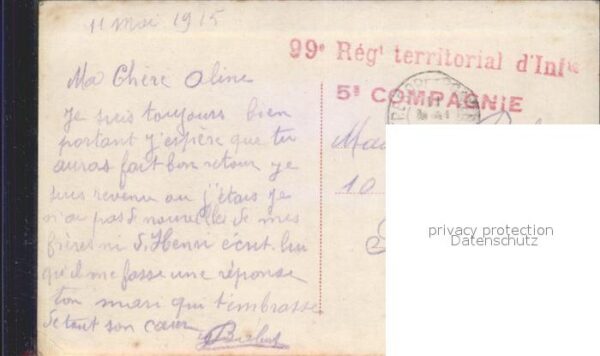 11 mai 1915
99e Régt territorial d'Infie
5e COMPAGNIE
Ma Chère Aline
je suis toujours bien
portant j'espère que tu
auras fait bon retour je
suis revenu ou j'étais je
n'ai pas de nouvelles de mes
frères ni d'Henri écrit lui
qu'il me fasse une réponse
ton mari qui t'embrasse
de tout son cœur
10
privacy protection
Datenschutz